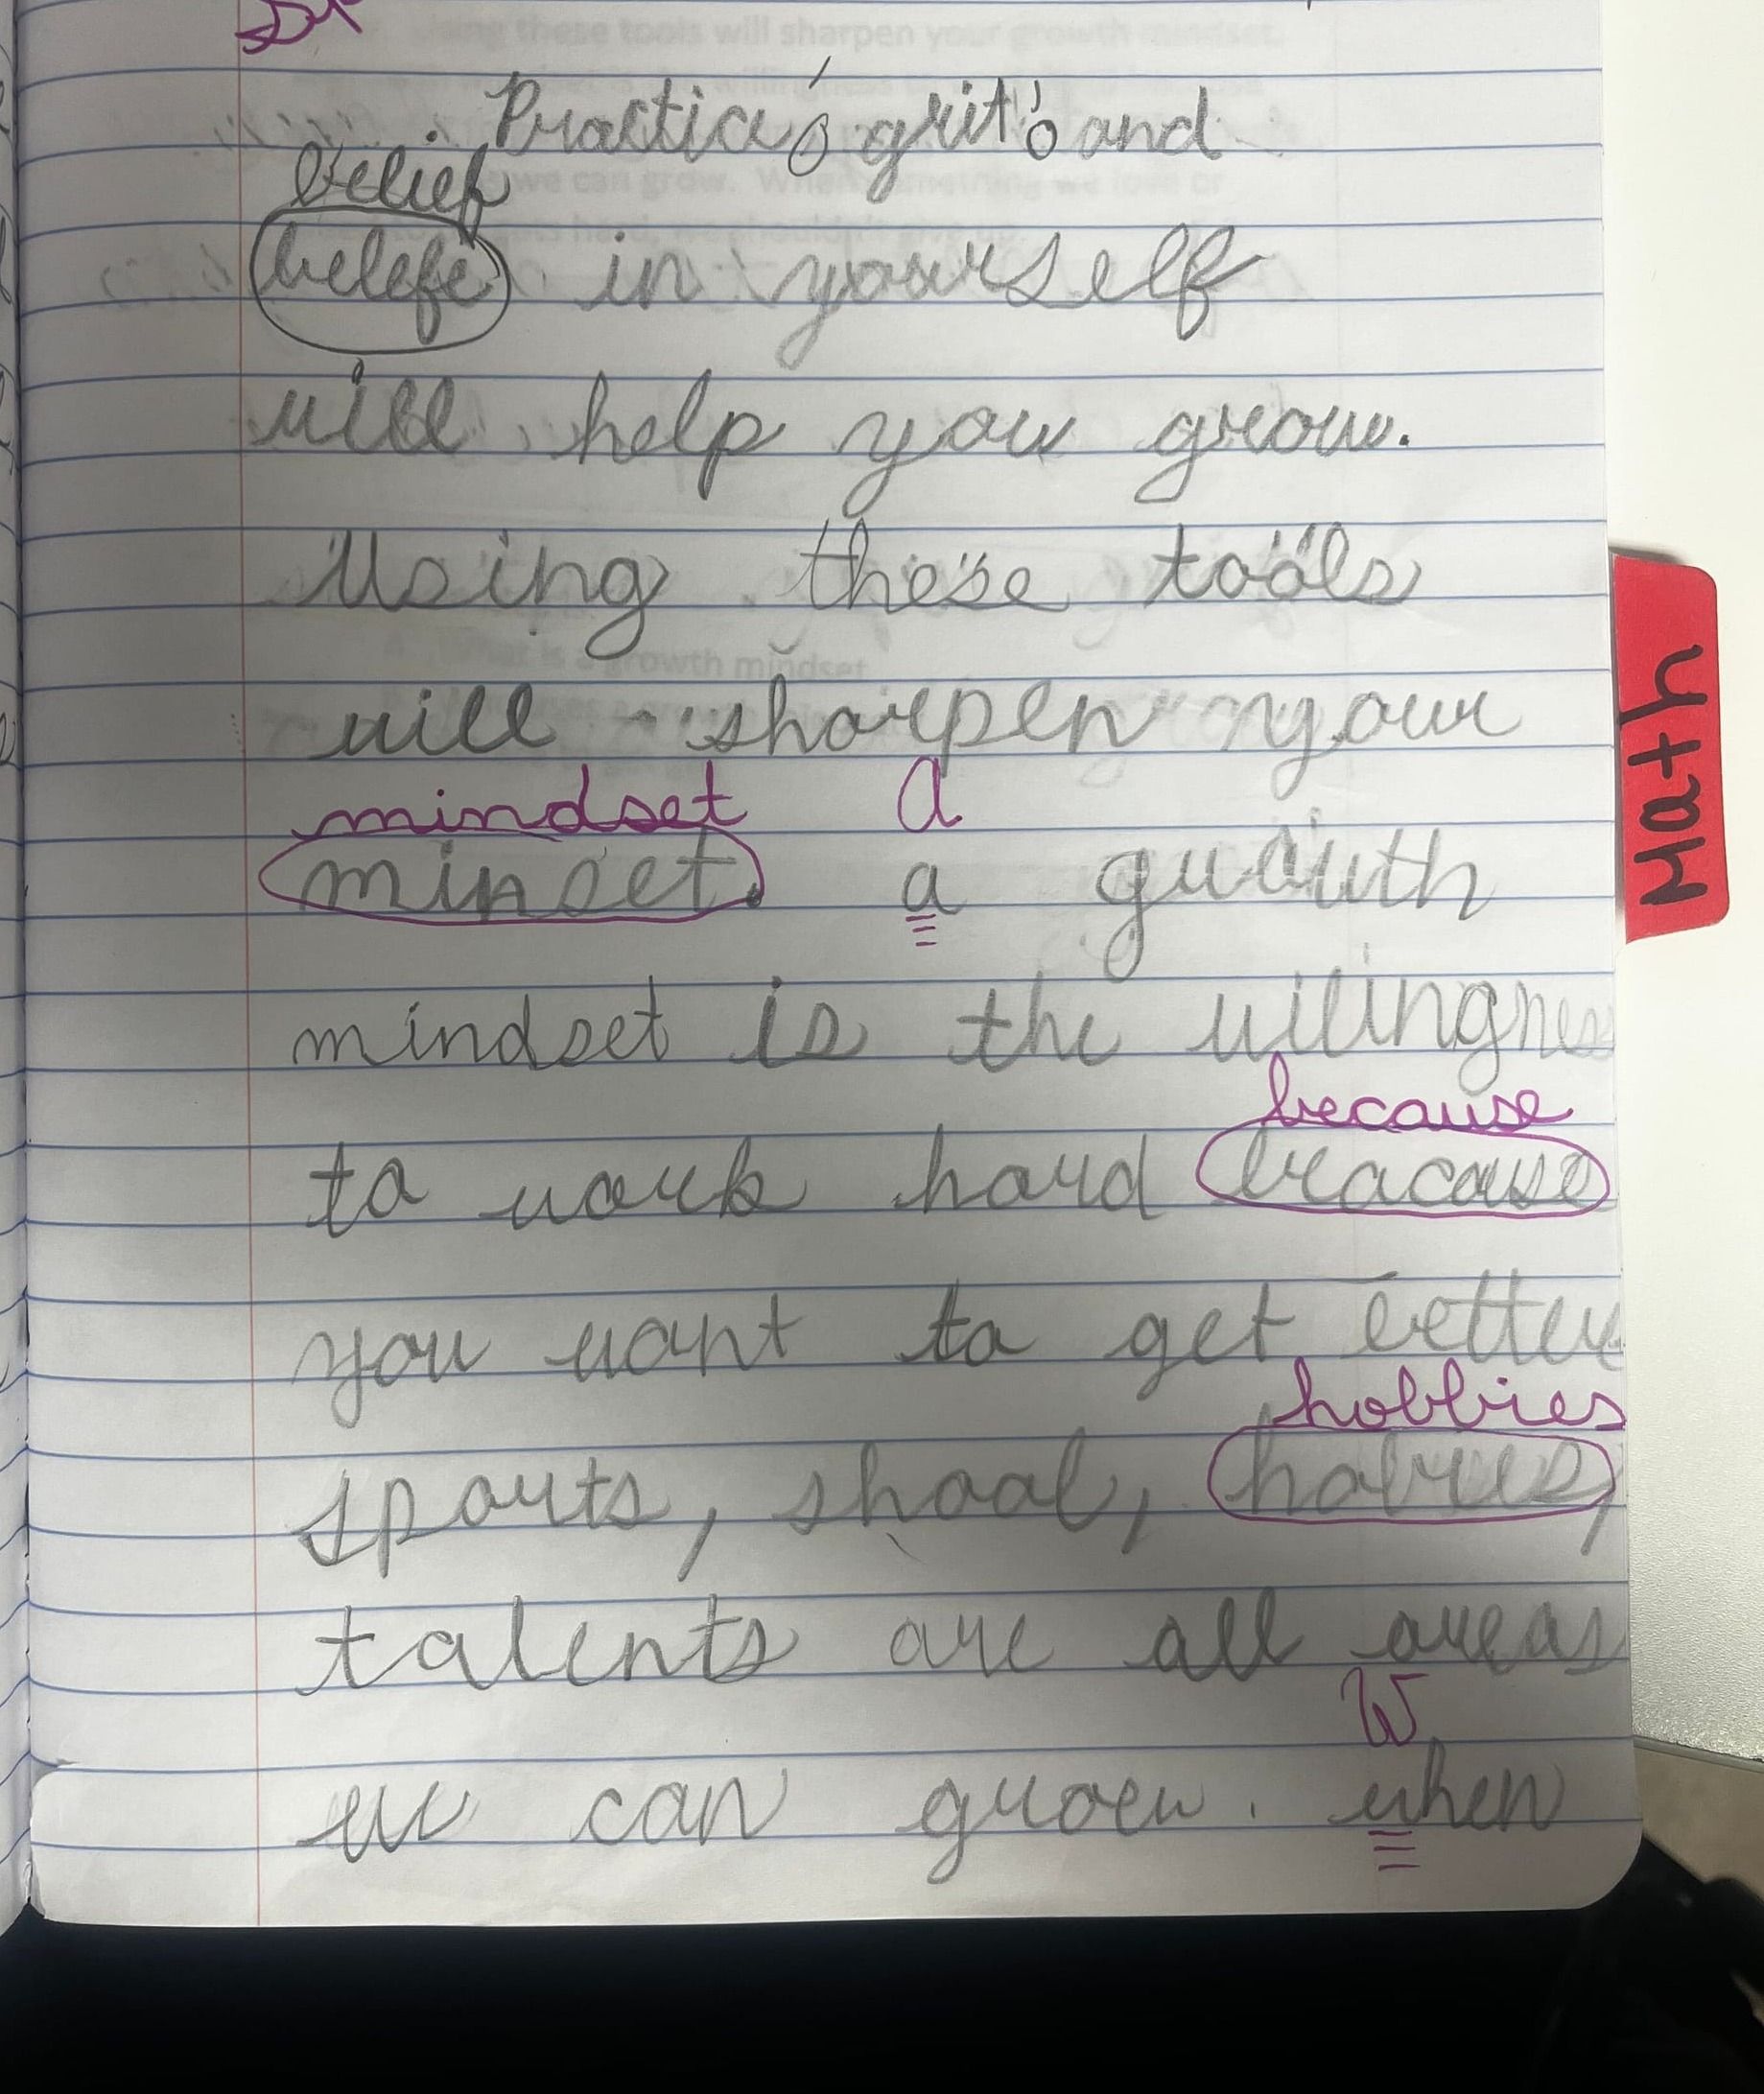 Practice, grit, and
belief
belefe in yourself
will help you grow.
Using these tools
will sharpen your
mindset A
minset. a growth
mindset is the wilingness
because
to work hard beacause
you want to get better
hobbies
sports, shool, hobies,
talents are all areas
W
we can groew. when
Math